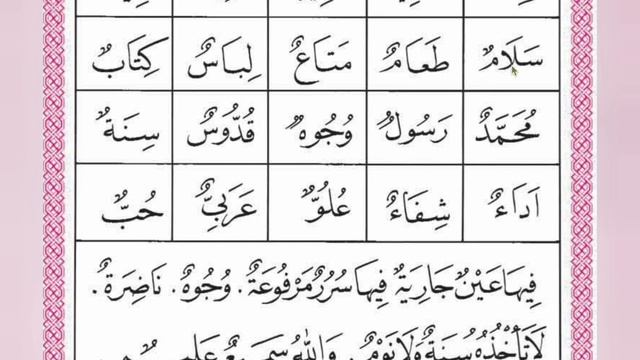 سَلَامٌ طَعَامٌ مَتَاعٌ لِبَاسٌ كِتَابٌ
مُحَمَّدٌ رَسُولٌ وُجُوهٌ قُدُّوسٌ سِنَةٌ
اَدَاءٌ شِفَاءٌ عُلُوٌّ عَرَبِيٌّ حُبٌّ
فِيهَا عَيْنٌ جَارِيَةٌ فِيهَا سُرُرٌ مَرْفُوعَةٌ . وُجُوهٌ . نَاضِرَةٌ .
لَا تَأْخُذُهُ سِنَةٌ وَلَا نَوْمٌ . وَاللهُ سَمِيعٌ عَلِيمٌ